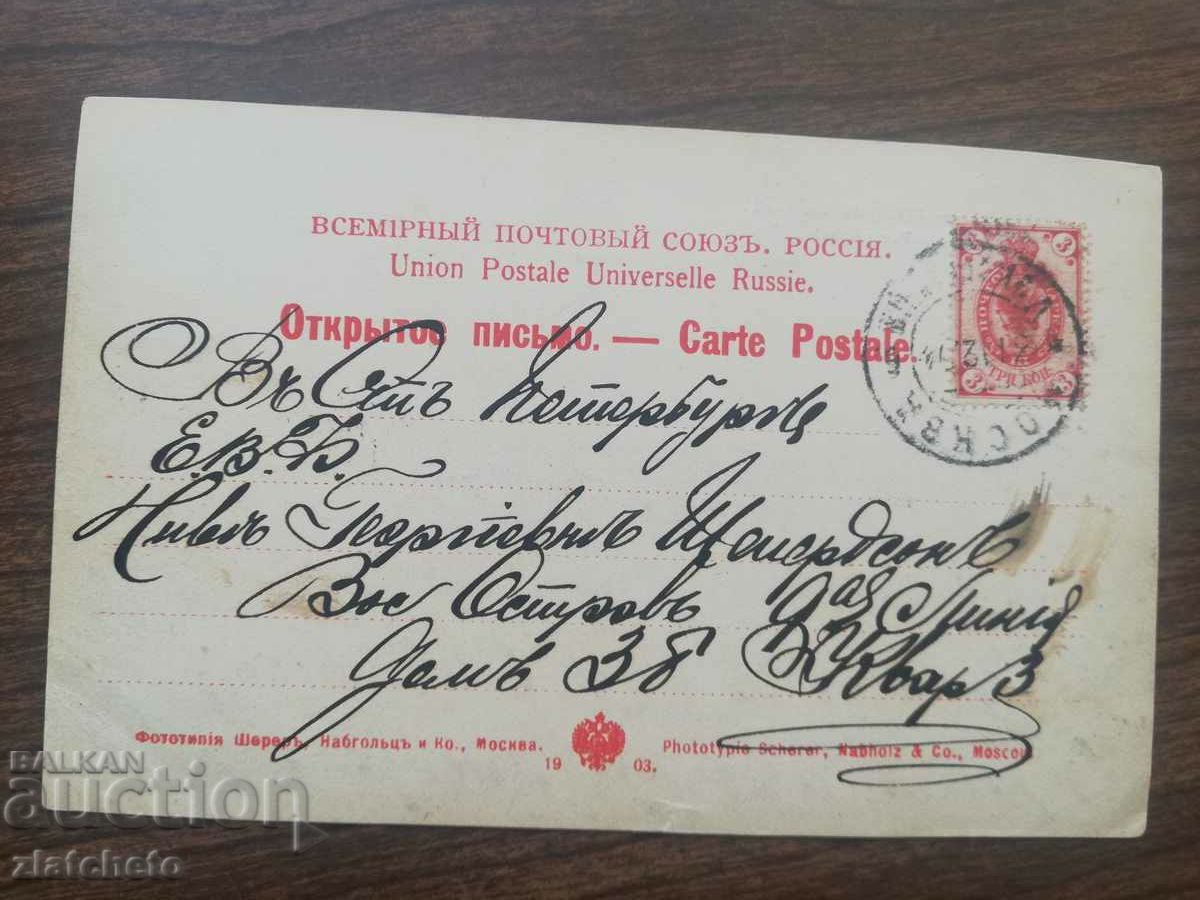 ВСЕМІРНЫЙ ПОЧТОВЫЙ СОЮЗЪ. РОССІЯ.
Union Postale Universelle Russie.
Открытое письмо. — Carte Postale.
3 3
3 ТРИ КОП. 3
МОСКВА
Въ Спб Петербургъ
Е. В. Б.
Георгіевнѣ
Вас Островъ 9ая Линія
Домъ 38 Квар 3
Фототипія Шереръ, Набгольцъ и Ко., Москва. 1903. Phototypie Scherer, Nabholz & Co., Moscou
BALKAN
auction
zlatcheto